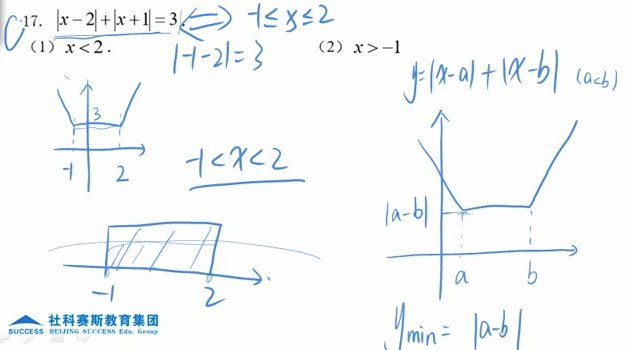 C 17. |x−2|+|x+1|=3. ⟺ -1≤x≤2
(1) x<2.
|-1-2|=3
(2) x>−1
y=|x-a|+|x-b| (a<b)
3
-1 2
-1<x<2
|a-b|
a b
-1 2
ymin= |a-b|
社科赛斯教育集团
SUCCESS BEIJING SUCCESS Edu. Group